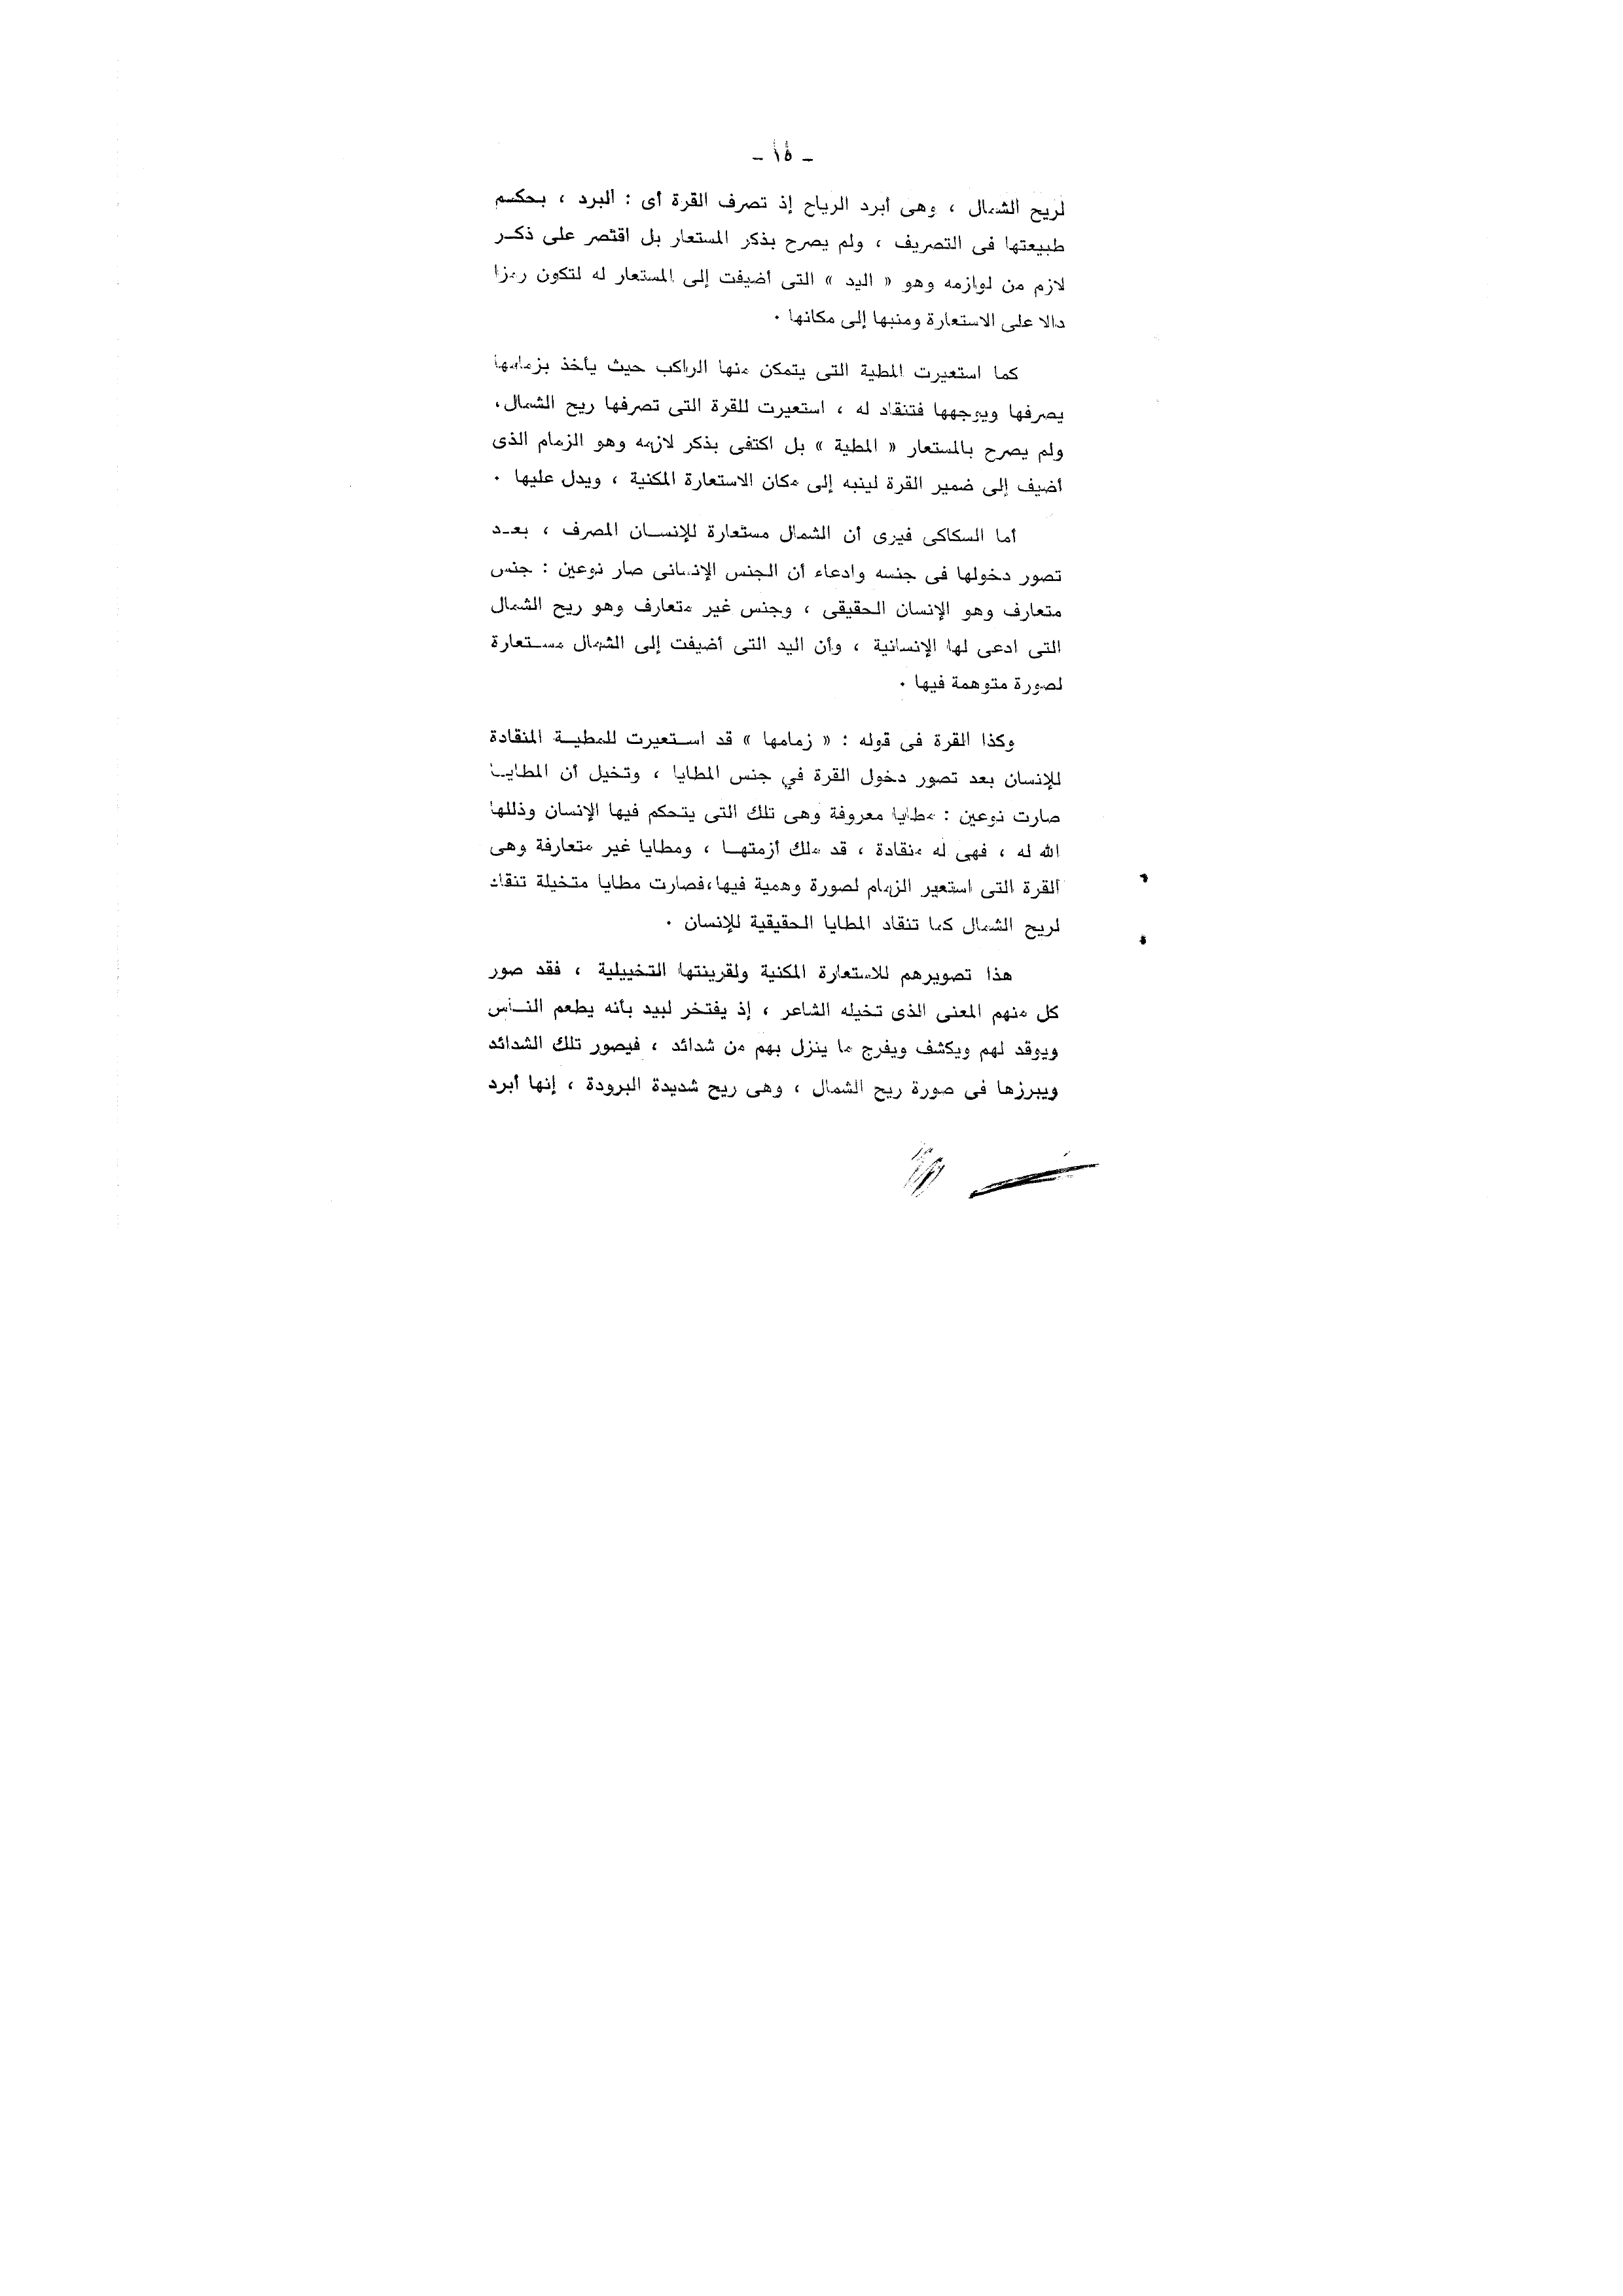 - ١٥ -
لريح الشمال ، وهى أبرد الرياح إذ تصرف القرة أى : البرد ، بحكم
طبيعتها فى التصريف ، ولم يصرح بذكر المستعار بل اقتصر على ذكر
لازم من لوازمه وهو « اليد » التى أضيفت إلى المستعار له لتكون رمزا
دالا على الاستعارة ومنبها إلى مكانها ٠
كما استعيرت المطية التى يتمكن منها الراكب حيث يأخذ بزمامها
يصرفها ويوجهها فتنقاد له ، استعيرت للقرة التى تصرفها ريح الشمال،
ولم يصرح بالمستعار « المطية » بل اكتفى بذكر لازمه وهو الزمام الذى
أضيف إلى ضمير القرة لينبه إلى مكان الاستعارة المكنية ، ويدل عليها ٠
أما السكاكى فيرى أن الشمال مستعارة للإنسان المصرف ، بعد
تصور دخولها فى جنسه وادعاء أن الجنس الإنسانى صار نوعين : جنس
متعارف وهو الإنسان الحقيقى ، وجنس غير متعارف وهو ريح الشمال
التى ادعى لها الإنسانية ، وأن اليد التى أضيفت إلى الشمال مستعارة
لصورة متوهمة فيها ٠
وكذا القرة فى قوله : « زمامها » قد استعيرت للمطية المنقادة
للإنسان بعد تصور دخول القرة في جنس المطايا ، وتخيل أن المطايا
صارت نوعين : مطايا معروفة وهى تلك التى يتحكم فيها الإنسان وذللها
الله له ، فهى له منقادة ، قد ملك أزمتها ، ومطايا غير متعارفة وهى
القرة التى استعير الزمام لصورة وهمية فيها،فصارت مطايا متخيلة تنقاد
لريح الشمال كما تنقاد المطايا الحقيقية للإنسان ٠
هذا تصويرهم للاستعارة المكنية ولقرينتها التخييلية ، فقد صور
كل منهم المعنى الذى تخيله الشاعر ، إذ يفتخر لبيد بأنه يطعم الناس
ويوقد لهم ويكشف ويفرج ما ينزل بهم من شدائد ، فيصور تلك الشدائد
ويبرزها فى صورة ريح الشمال ، وهى ريح شديدة البرودة ، إنها أبرد